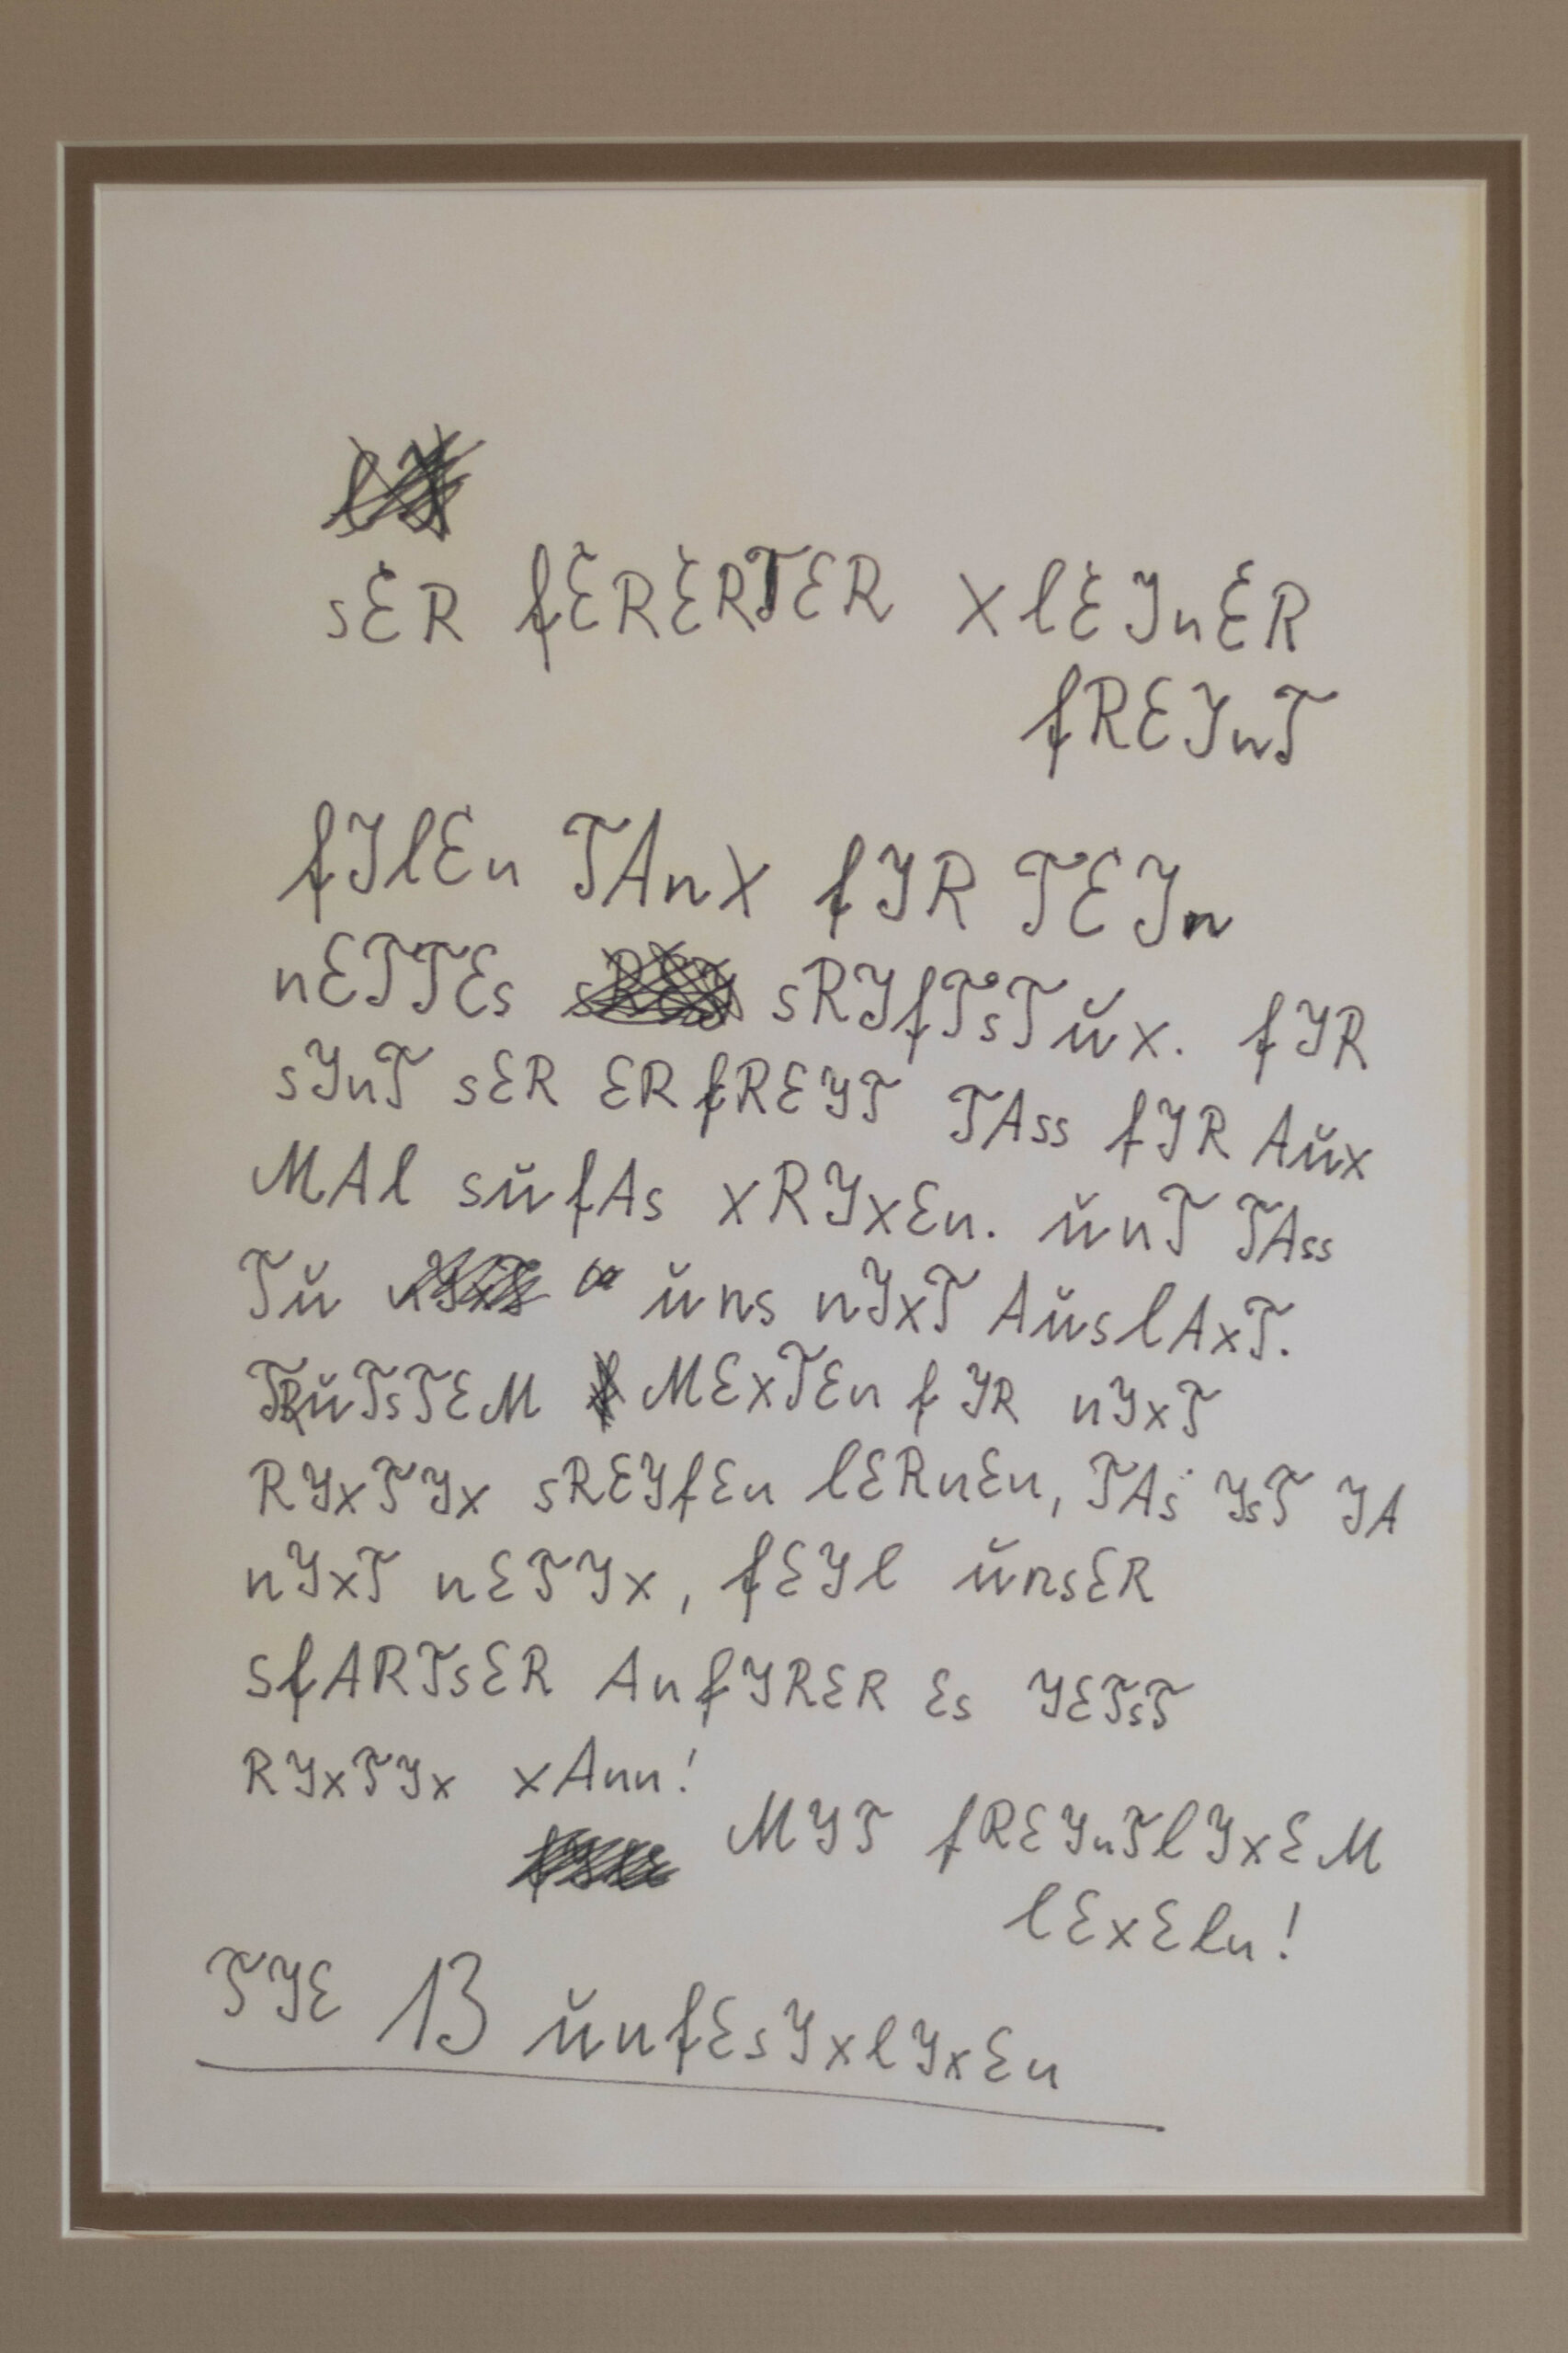 sER fERERTER xlEJnER
fREJnT
fJlEn TAnx fJR TEJn
nETTEs sRJfTsTŭx. fJR
sJnT sER ERfREJT TAss fJR Aŭx
MAl sŭfAs xRJxEn. ŭnT TAss
Tŭ ŭns nJxT AŭslAxT.
TRŭTsTEM MExTEn fJR nJxT
RJxTJx sREJfEn lERnEn, TAs JsT JA
nJxT nETJx, fEJl ŭnsER
sfARTsER AnfJRER Es JETsT
RJxTJx xAnn!
MJT fREJnTlJxEM
lExEln!
TJE 13 ŭnfEsJxlJxEn